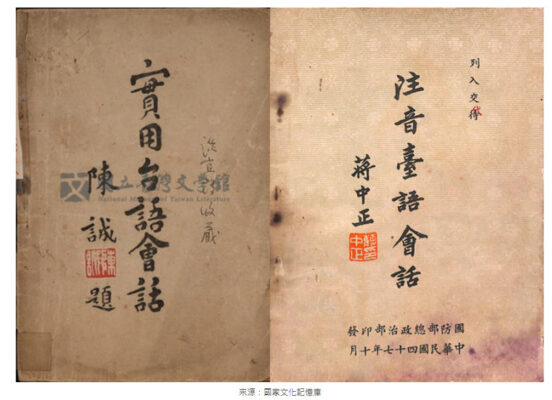 實用台語會話
陳誠題
收藏
國立台灣文學館
National Museum of Taiwan Literature
列入交
注音臺語會話
蔣中正
國防部總政治部印發
中華民國四十七年十月
來源：國家文化記憶庫